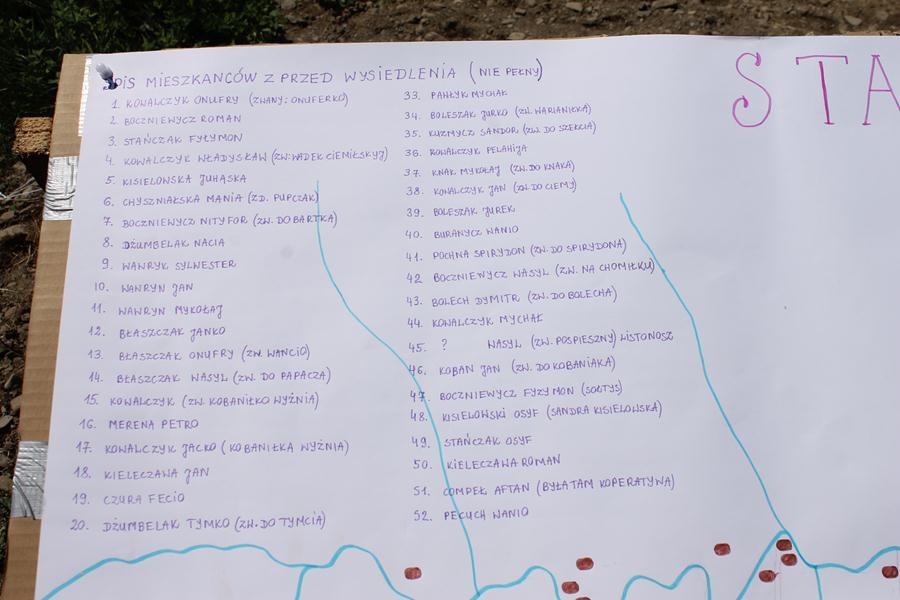 SPIS MIESZKAŃCÓW Z PRZED WYSIEDLENIA (NIE PEŁNY)
1. KOWALCZYK ONUFRY (ZWANY: ONUFERKO)
2. BOCZNIEWYCZ ROMAN
3. STAŃCZAK FYŁYMON
4. KOWALCZYK WŁADYSŁAW (ZW: WADEK CIEMIŁSKYJ)
5. KISIELOWSKA JUHASKA
6. CHYSZNIAŁSKA MANIA (ZD. PUPCZAK)
7. BOCZNIEWYCZ NITYFOR (ZW. DO BARTKA)
8. DŻUMBELAK NACIA
9. WAWRYK SYLWESTER
10. WAWRYN JAN
11. WAWRYN MYKOŁAJ
12. BŁASZCZAK JANKO
13. BŁASZCZAK ONUFRY (ZW. WANCIO)
14. BŁASZCZAK WASYL (ZW. DO PAPACZA)
15. KOWALCZYK (ZW. KOBANIŁKO WYŻNIA)
16. MERENA PETRO
17. KOWALCZYK JACKO (KOBANIŁKA WYŻNIA)
18. KIELECZAWA JAN
19. CZURA FECIO
20. DŻUMBELAK TYMKO (ZW. DO TYMCIA)
33. PAWŁYK MYCHAŁ
34. BOLESZAK JURKO (ZW. WARIANIŁKA)
35. KUZMYCZ SANDOR (ZW. DO SZEKCIA)
36. KOWALCZYK PELAHIJA
37. KNAK MYKOŁAJ (ZW. DO KNAKA)
38. KOWALCZYK JAN (ZW. DO CIEMY)
39. BOLESZAK JUREK
40. BURANYCZ WANIO
41. POCHNA SPIRYDON (ZW. DO SPIRYDONA)
42 BOCZNIEWYCZ WASYL (ZW. NA CHOMIŁKU)
43. BOLECH DYMITR (ZW. DO BOLECHA)
44. KOWALCZYK MYCHAŁ
45. ? WASYL (ZW. POSPIESZNY) LISTONOSZ
46. KOBAN JAN (ZW. DO KOBANIAKA)
47. BOCZNIEWYCZ FYZYMON (SOŁTYS)
48. KISIELOWSKI OSYF (SANDRA KISIELOWSKA)
49. STAŃCZAK OSYF
50. KIELECZAWA ROMAN
51. COMPEŁ AFTAN (BYŁA TAM KOPERATYWA)
52. PECUCH WANIO
STA